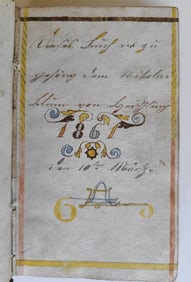 Dieses Buch ist zu
gehörig dem Nikolas
Blum von
1861
den 10ten März